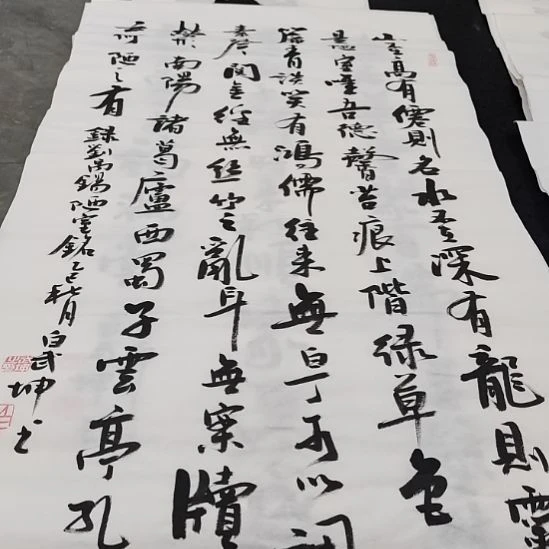 山不在高有僊則名水不在深有龍則靈
是室唯吾德馨苔痕上階绿草色
簾青談笑有鴻儒往来無白丁可以調
素琴閱金經無丝竹之亂耳無案牘
形南陽諸葛廬西蜀子雲亭孔
何陋之有 錄劉禹錫陋室銘乙巳秋月 白武坤书